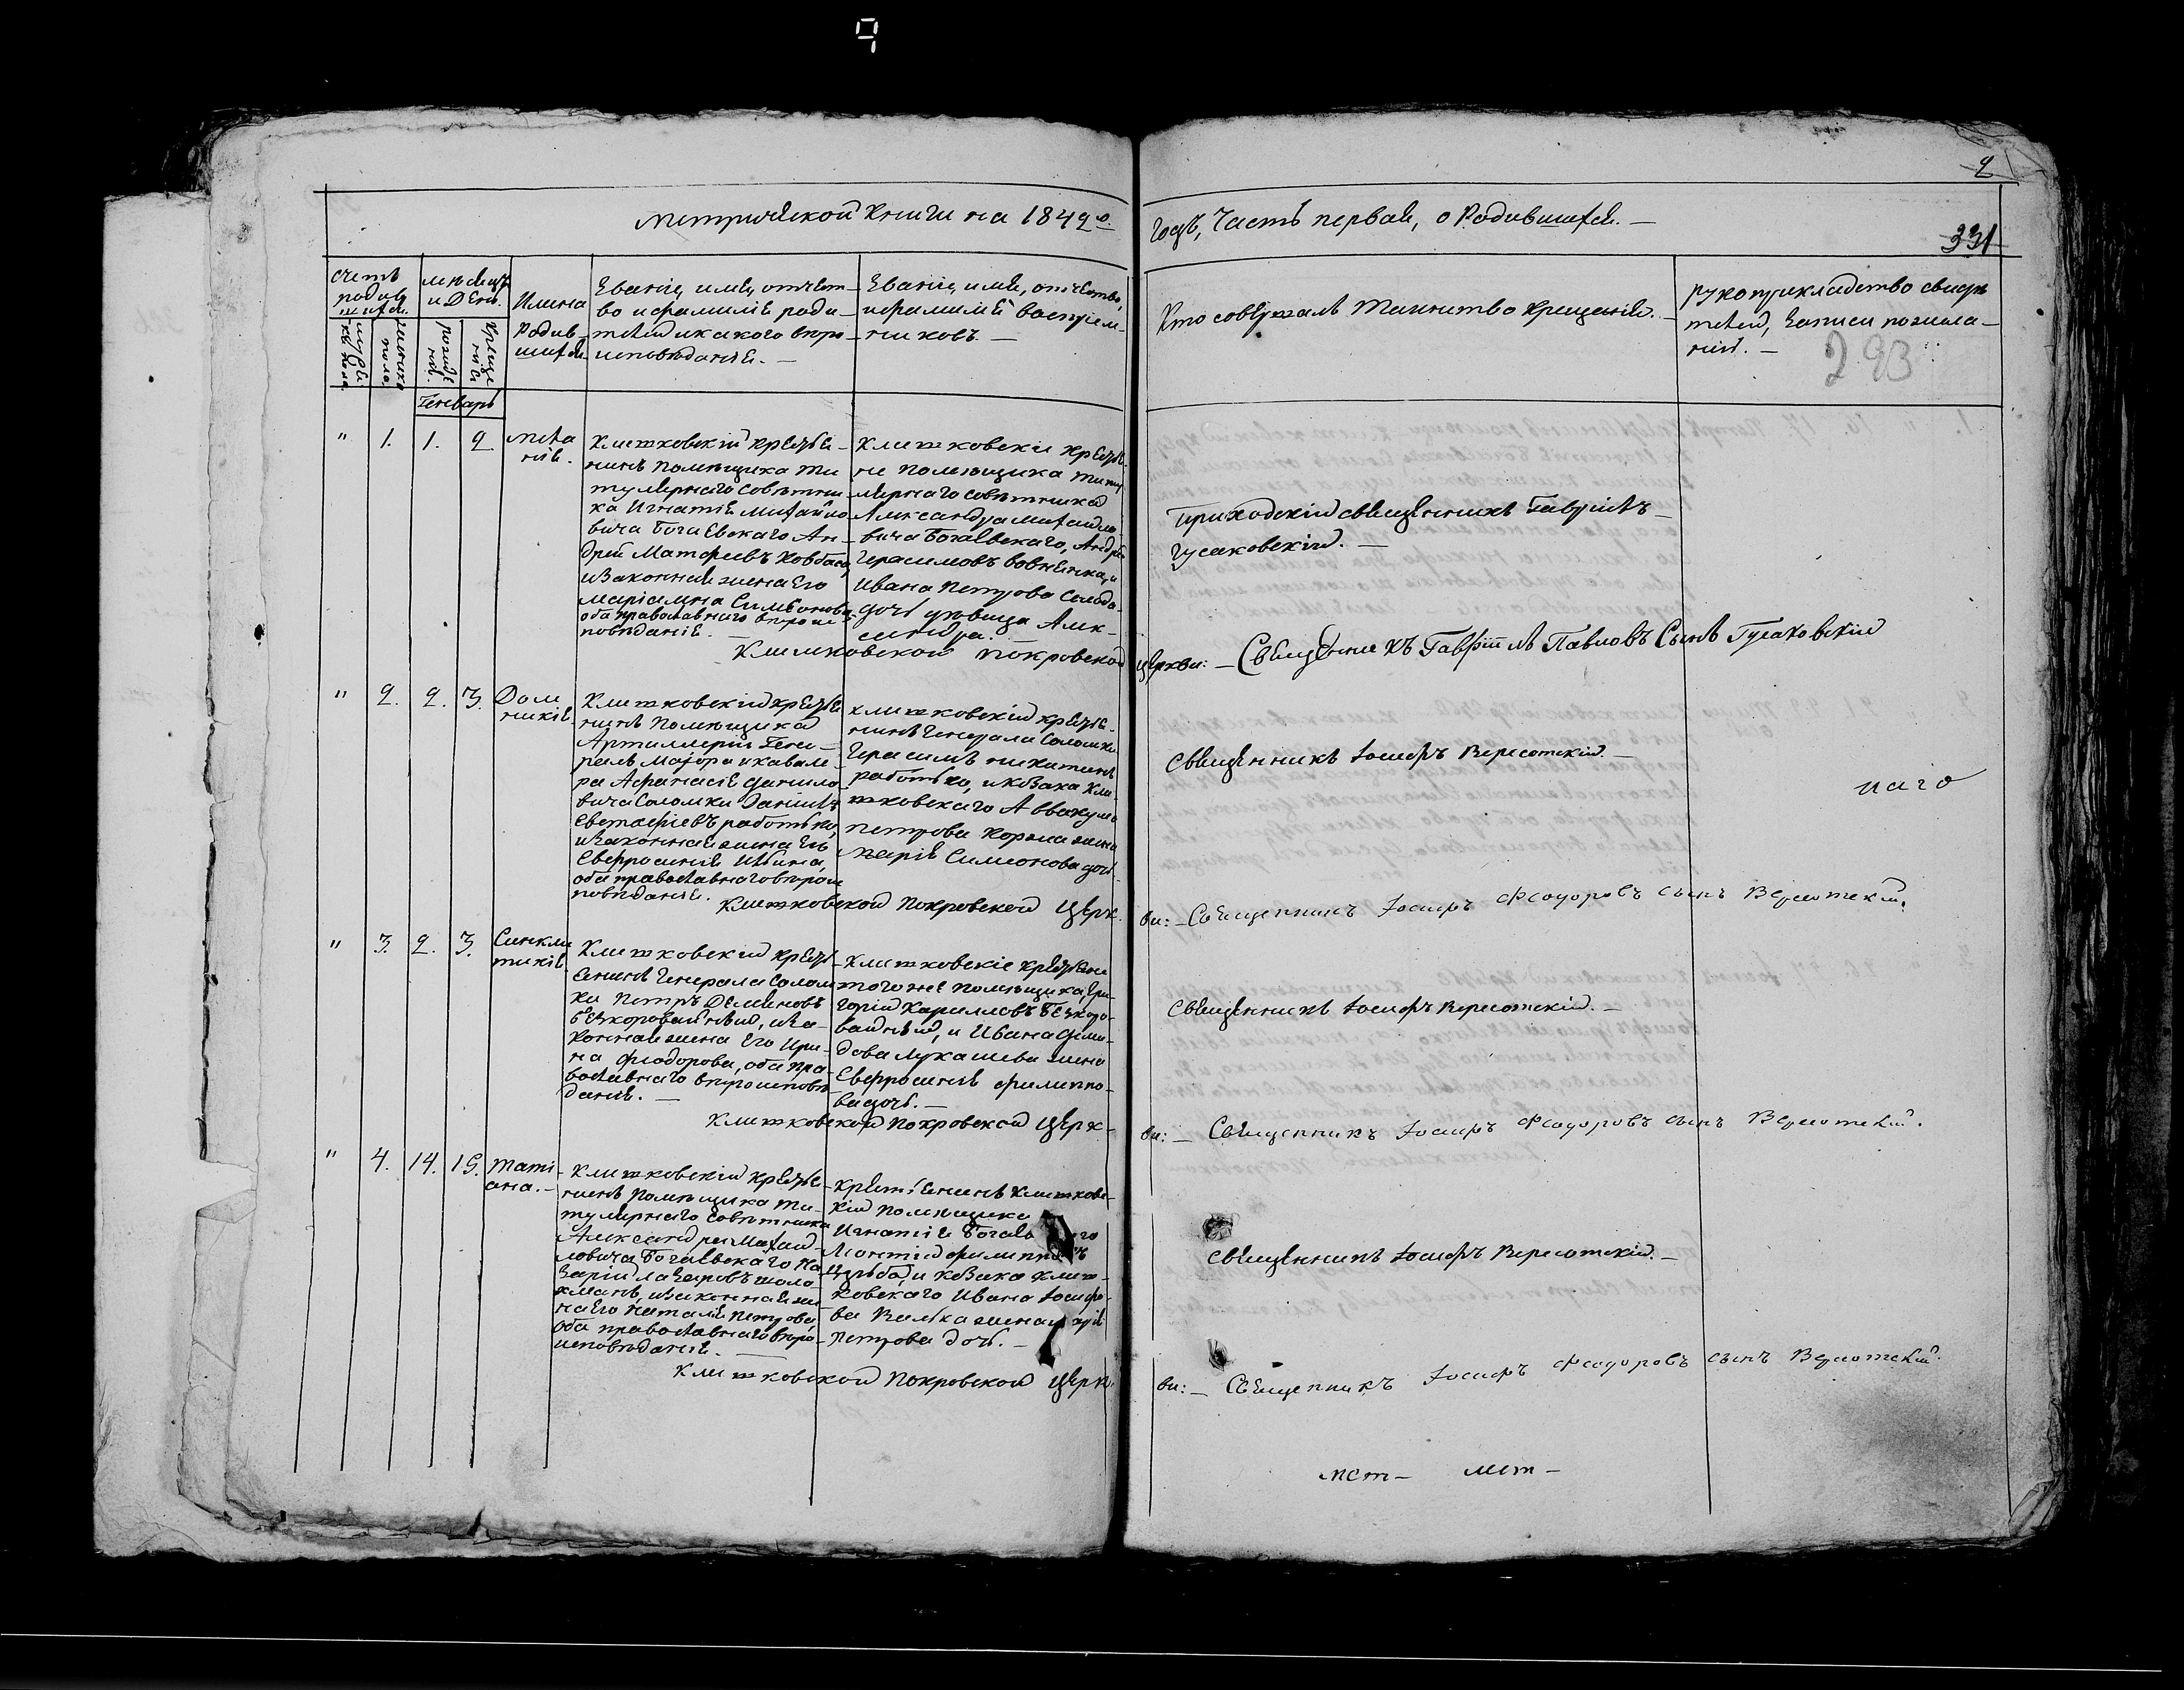 9
2
Метрической Книги на 1842й
годъ, Часть первая, о Родившихся.—
331
счетъ родив шихся
мѣсяцъ и День.
Имена Родив шихся
Званіе, имя, отчест-
во и фамилія роди-
телей и какого вѣро-
исповѣданія.—
Званіе, имя, отчество,
и фамилія воспріем-
никовъ.—
Кто совершалъ таинство крещенія.—
рукоприкладство свидѣ
телей, записи по жела-
нію.—
293
мужеска пола
женска пола
рожде нія
креще нія
Генварь
" 1. 1. 2. Мела нія.
Клишковскій крестья-
нинъ помѣщика ти
тулярнаго совѣтни
ка Игнатія Михайло
вича Богаевскаго Ан-
дрей Матфеевъ Ковбаса,
и законная жена его
Маріамна Симеонова
оба православнаго вѣроис
повѣданія.—
Клишковскіе крестья-
не помѣщика титу
лярнаго совѣтника
Александра Михайло
вича Богаевскаго, Андрей
Герасимовъ Вовненка, и
Ивана Петрова Солода-
дочь дѣвица Алек-
сандра.
Приходскій священникъ Гавріилъ—
Гусаковскій.—
Клишковской Покровской церкви:— Священникъ Гавріилъ Павловъ Сынъ Гусаковскій
" 2. 2. 3. Дом никія.
Клишковскій крестья
нинъ помѣщика
Артиллеріи Гене-
ралъ Маіора и кавале-
ра Афанасія Данило
вича Соломки Даніилъ
Евстафіевъ работько,
и законная жена его
Евфросинія Ильина,
оба православнаго вѣроис
повѣданія.
клишковскій крестья-
нинъ Генерала Соломки
Герасимъ Никитинъ
работько, и козака Кли-
шковскаго Аввакума
Петрова Коржа жена
Марія Симеонова дочь.
Священникъ Іосифъ Вересотскій.—
наго
Клишковской Покровской Церк-
ви:— Священникъ Іосифъ Феодоровъ сынъ Вересотскій.
" 3. 2. 3. Синкли тикія.
Клишковскій кресть-
янинъ Генерала Солом
ки Петръ Деміановъ
безкоровайный, и за-
конная жена его Ири-
на Феодорова, оба пра-
вославнаго вѣроисповѣ
данія.—
Клишковскіе крестьяне
того же помѣщика Гри-
горій Кариловъ Безкоро-
вайный, и Ивана Деми-
дова Лукашева жена
Евфросинія филиппо-
ва дочь.—
Священникъ Іосифъ Вересотскій.—
Клишковской Покровской Церк-
ви:— Священникъ Іосифъ Феодоровъ сынъ Вересотскій.
" 4. 14. 15. Тати- ана.—
Клишковскій крестья-
нинъ помѣщика ти-
тулярнаго совѣтника
Александра Михай-
ловича Богаевскаго На
зарій Лазаровъ
и законная же
на его Наталія Петрова,
оба православнаго вѣро-
исповѣданія.—
Крестьянинъ Клишковс-
кій помѣщика
Игнатія Богаев го
Леонтій филипповъ
и козака Клиш-
ковскаго Ивана Іосифо-
ва жена
Петрова дочь.—
Священникъ Іосифъ Вересотскій.—
Клишковской Покровской Церк-
ви:— Священникъ Іосифъ Феодоровъ сынъ Вересотскій.
мет— мет—